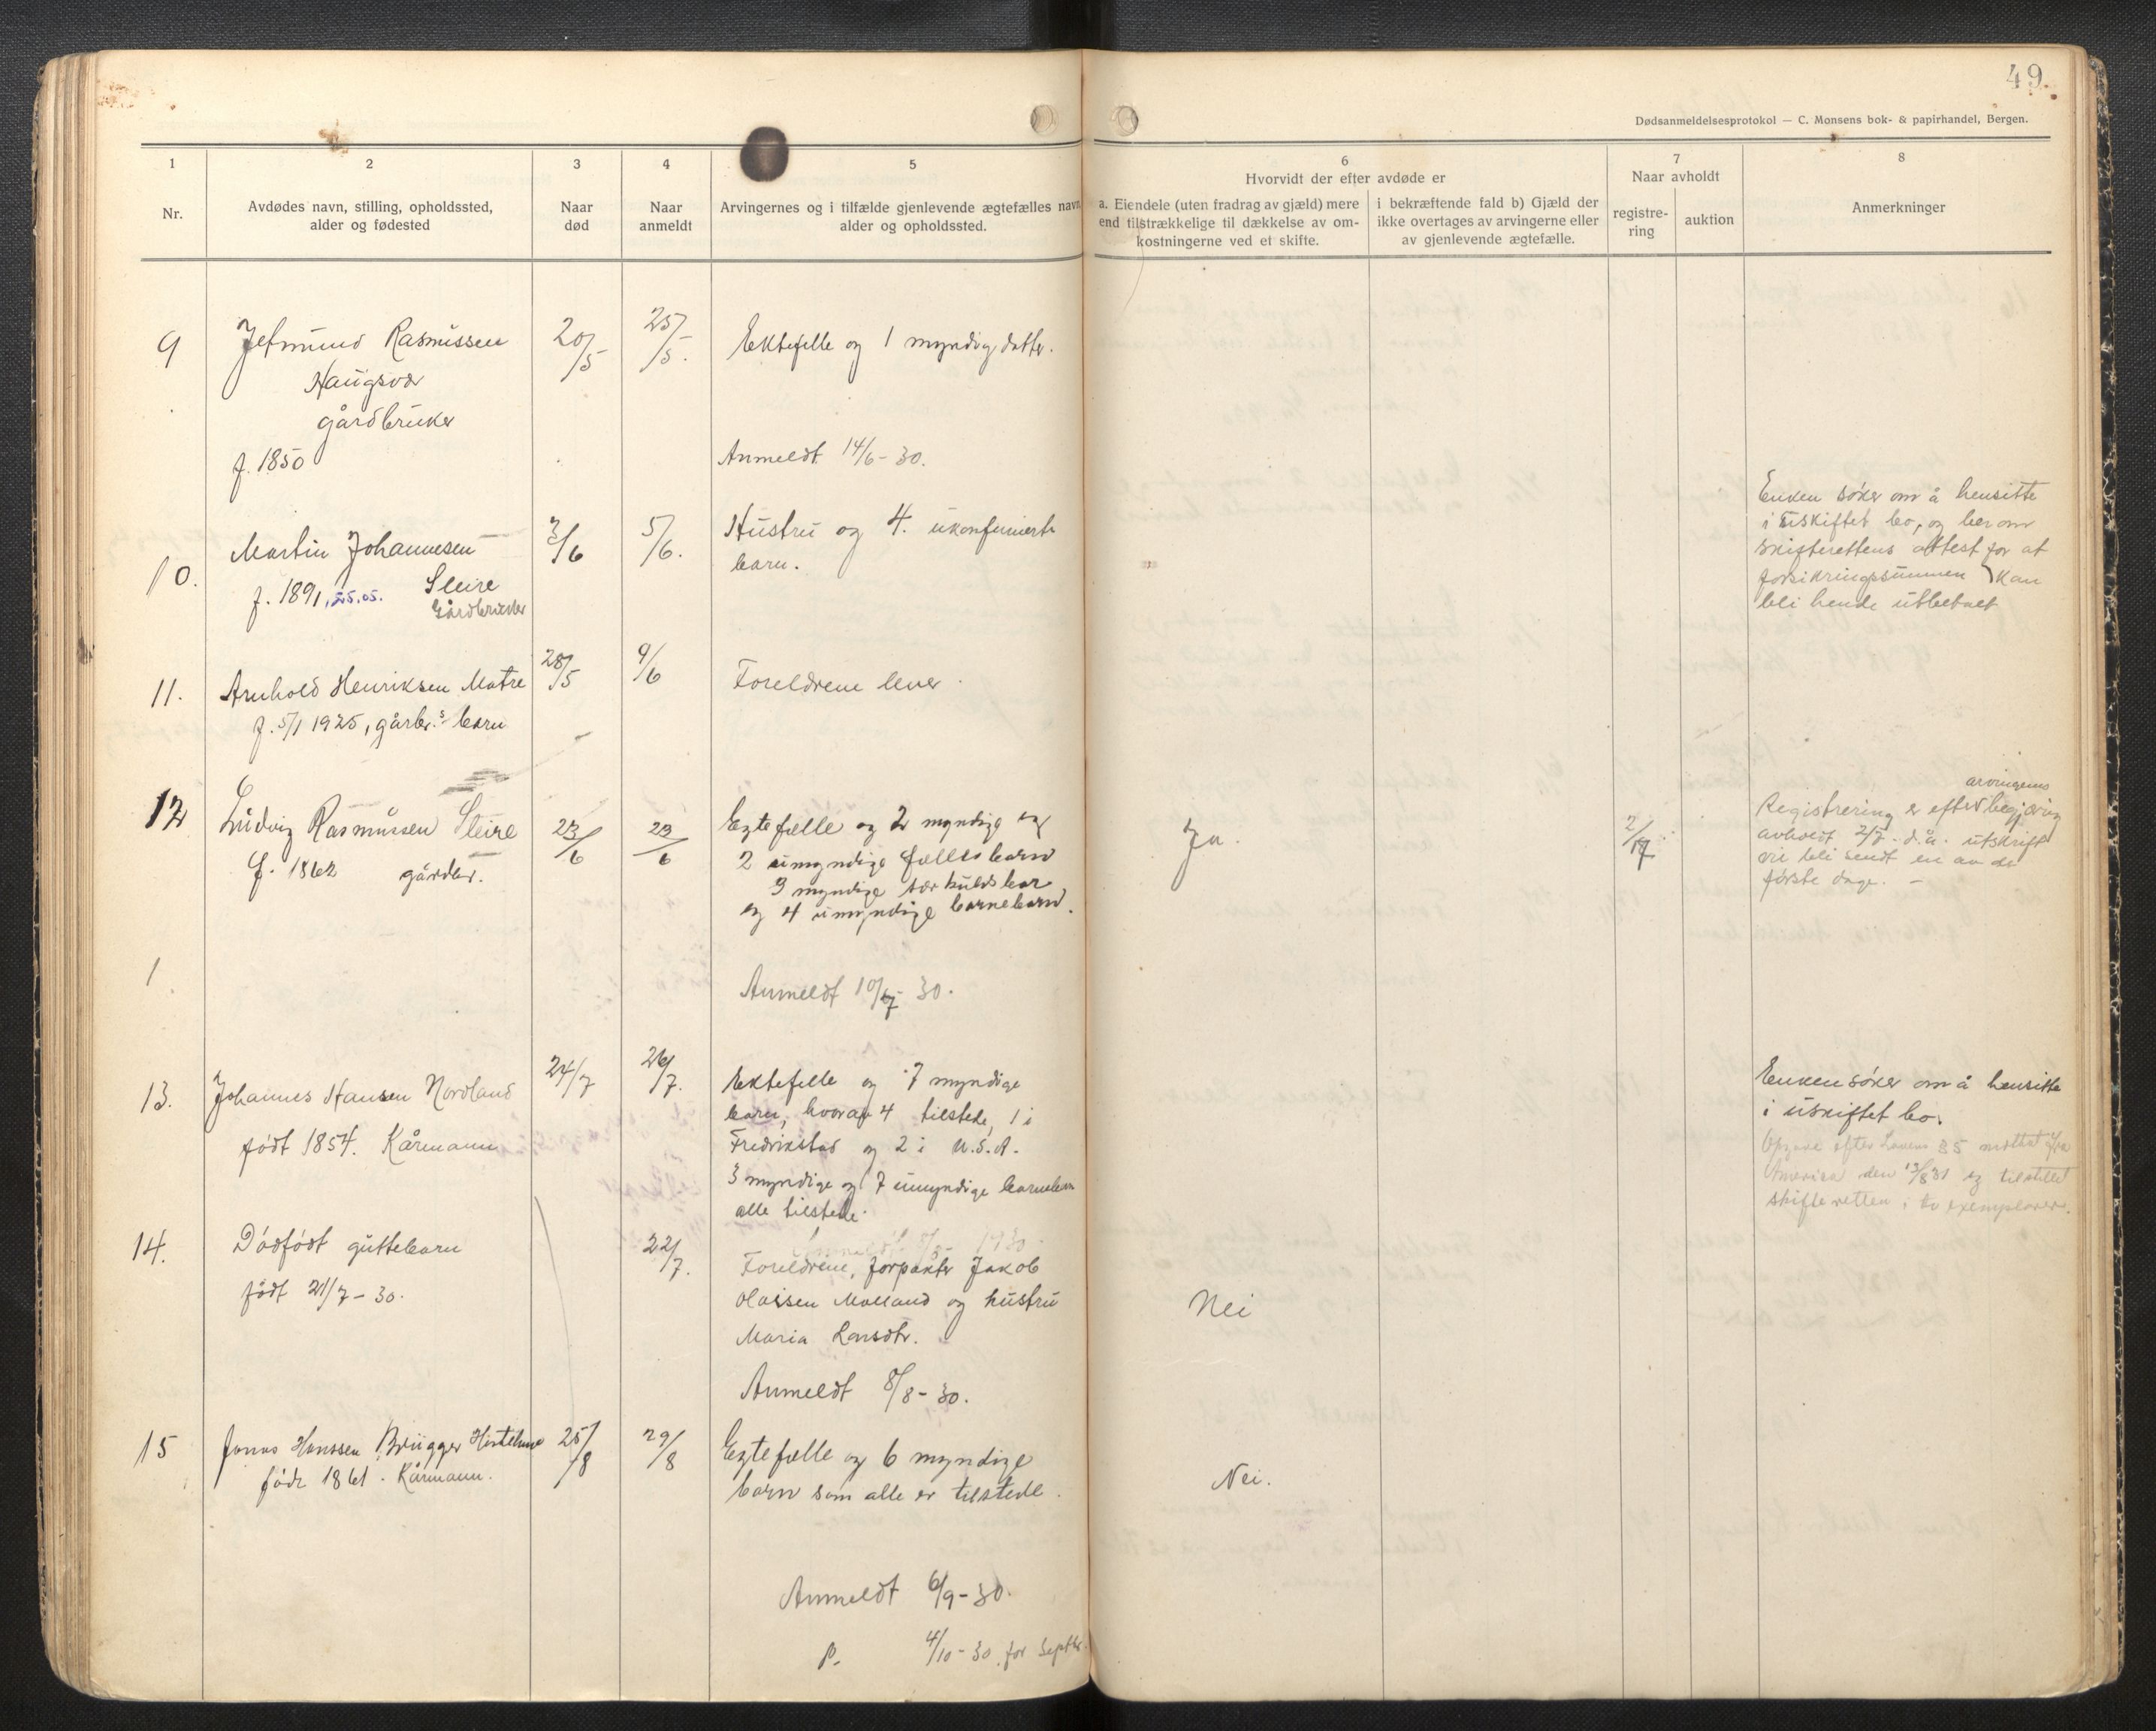 49.
Dødsanmeldelsesprotokol — C. Monsens bok- & papirhandel, Bergen.
1
Nr.
2
Avdødes navn, stilling, opholdssted,
alder og fødested
3
Naar
død
4
Naar
anmeldt
5
Arvingernes og i tilfælde gjenlevende ægtefælles navn
alder og opholdssted.
6
Hvorvidt der efter avdøde er
a. Eiendele (uten fradrag av gjæld) mere
end tilstrækkelige til dækkelse av om-
kostningerne ved et skifte.
i bekræftende fald b) Gjæld der
ikke overtages av arvingerne eller
av gjenlevende ægtefælle.
7
Naar avholdt
registre-
ring
auktion
8
Anmerkninger
9
Jetmund Rasmussen
Haugsvær
gårdbruker
f. 1850
20/5
25/5.
Ektefelle og 1 myndig datter.
Anmeldt 14/6 - 30.
10.
Martin Johannesen
f. 1891, 25.05. Sleire
Gårdbruker
3/6
5/6.
Hustru og 4. ukonfirmerte
barn.
Enken søker om å hensitte
i uskiftet bo, og ber om
skifterettens attest for at
forsikringssummen kan
bli hende utbetalt
11.
Arnhold Henriksen Matre
f. 5/1 1925, gårbr.s barn
28/5
9/6
Foreldrene lever.
12
Ludvig Rasmussen Sleire
f. 1862 gårdbr.
23/6
23/6
Egtefælle og 2 myndige og
2 umyndige fælles barn
3 myndige særkulds bar
og 4 umyndige barnebarn.
Ja.
2/7
arvingens
Registrering er efter begjæring
avholdt 2/7. d.å. utskrift
vil bli sendt en av de
første dage. -
1
Anmeldt 10/7 30.
13.
Johannes Hansen Nordland
født 1854. Kårmann
24/7
26/7.
Ektefelle og 7 myndige
barn, hvorav 4 tilstede, 1 i
Fredrikstad og 2 i U.S.A.
3 myndige og 7 umyndige barnebarn
alle tilstede.
Enken søker om å hensitte
i uskiftet bo.
Opgave efter Lovens § 5 mottat fra
Amerika den 13/8 31 og tilstillet
skifteretten i to exemplarer.
14.
Dødfødt guttebarn
født 21/7 - 30.
22/7.
1930
Foreldrene, forpakter Jakob
Olassen Molland og hustru
Maria Larsdtr.
Nei
Anmeldt 8/8 - 30.
15
Jonas Hanssen Brügger
født 1861. Kårmann.
25/8
29/8
Egtefelle og 6 myndige
barn som alle er tilstede.
Nei.
Anmeldt 6/9 - 30.
4/10 - 30 for Septbr.